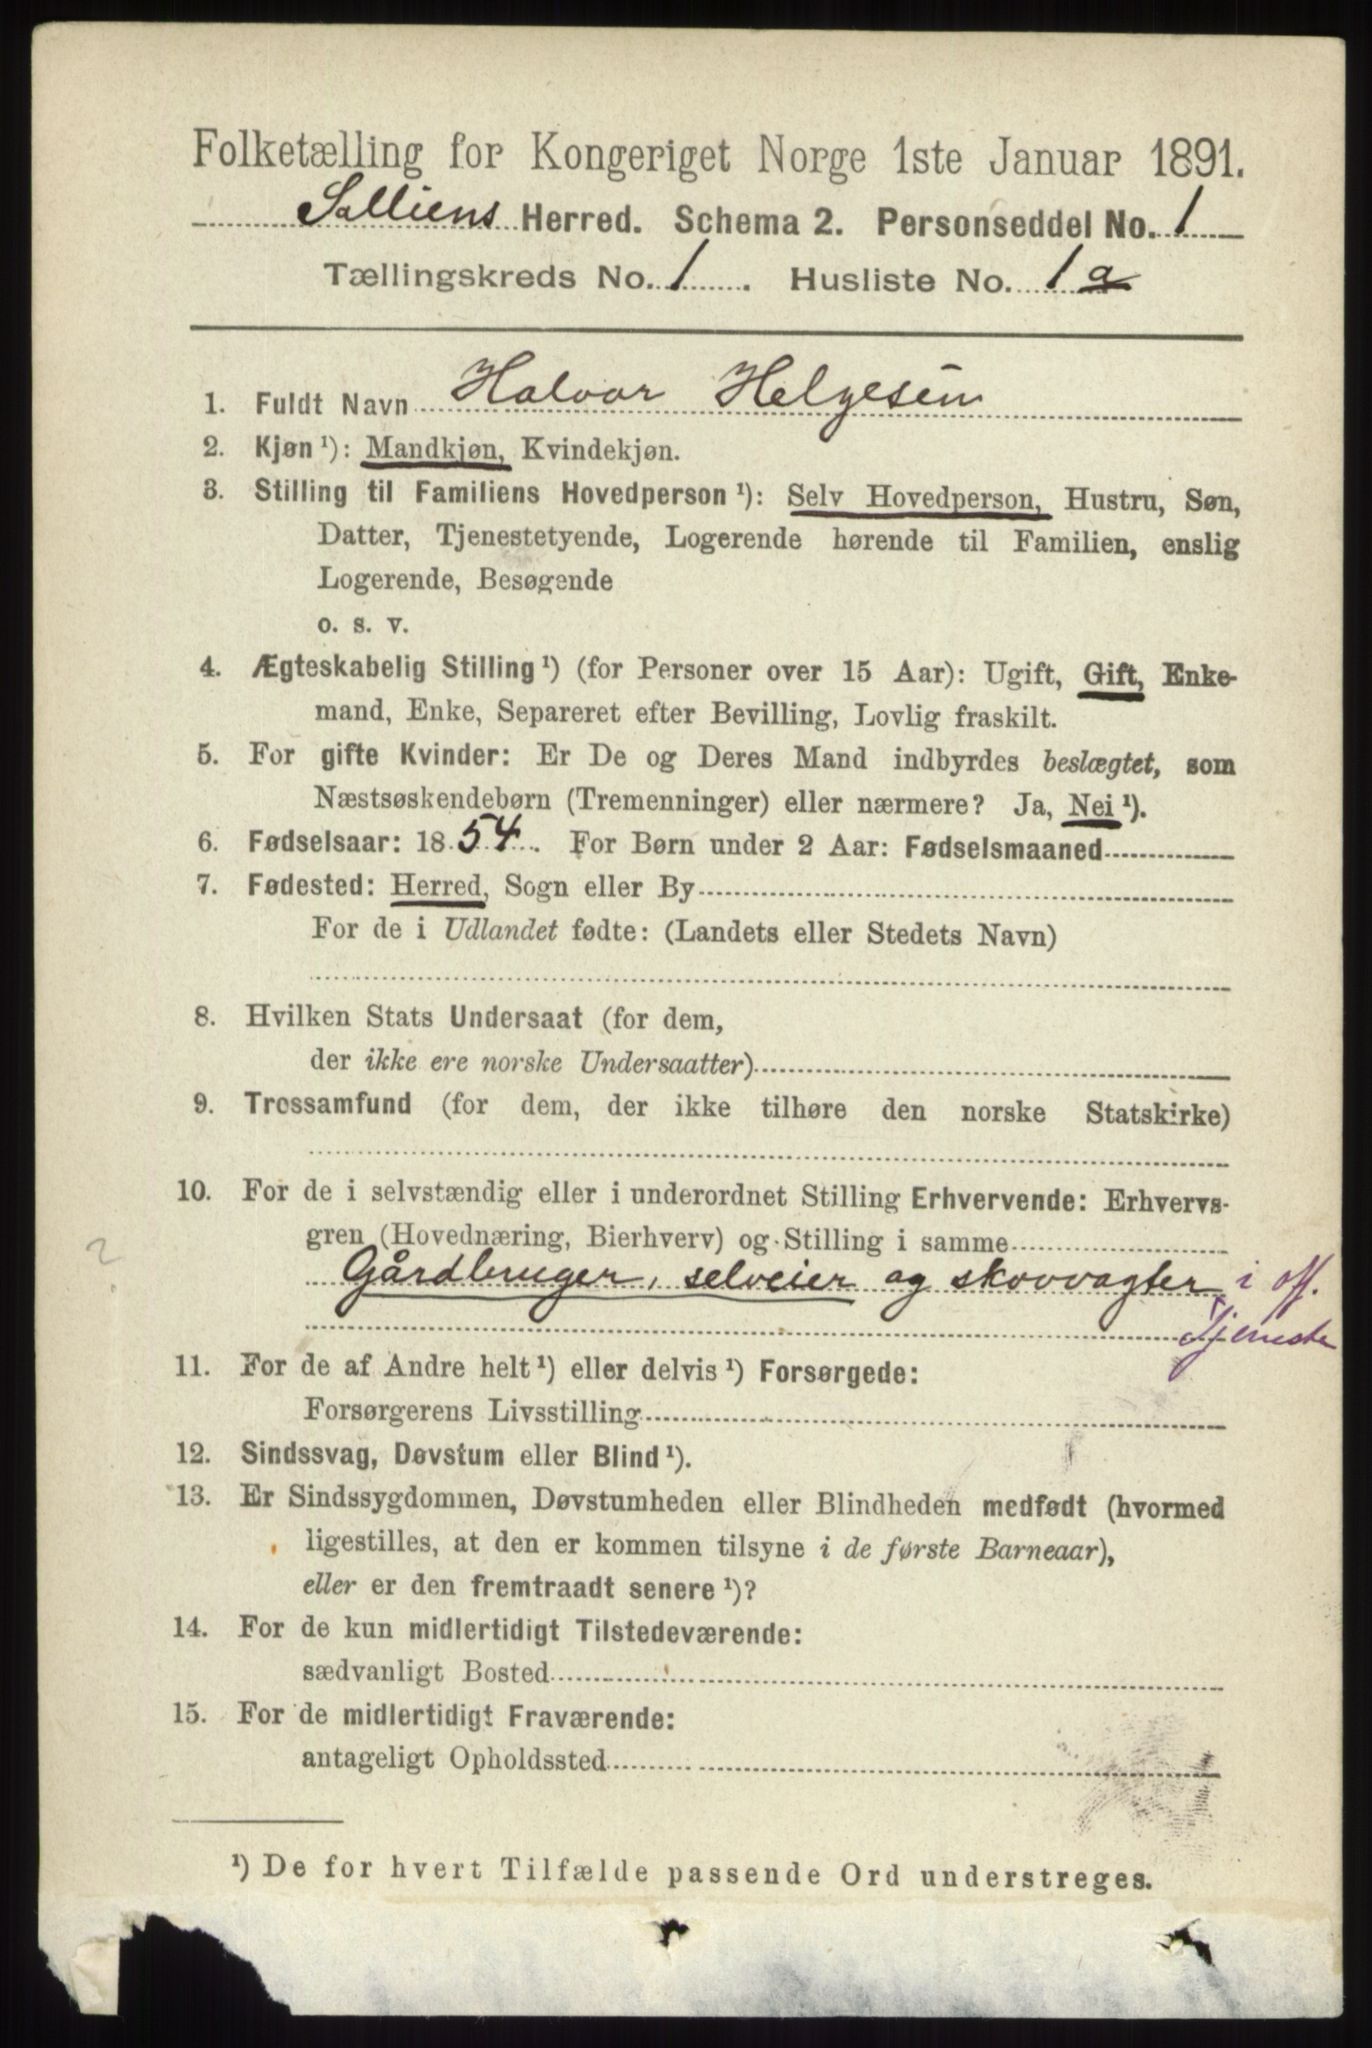 Folketælling for Kongeriget Norge 1ste Januar 1891.
Salliens Herred. Schema 2. Personseddel No. 1
Tællingskreds No. 1. Husliste No. 1 a
1. Fuldt Navn Halvor Helgesen
2. Kjøn ¹): Mandkjøn, Kvindekjøn.
3. Stilling til Familiens Hovedperson ¹): Selv Hovedperson, Hustru, Søn,
Datter, Tjenestetyende, Logerende hørende til Familien, enslig
Logerende, Besøgende
o. s. v.
4. Ægteskabelig Stilling ¹) (for Personer over 15 Aar): Ugift, Gift, Enke-
mand, Enke, Separeret efter Bevilling, Lovlig fraskilt.
5. For gifte Kvinder: Er De og Deres Mand indbyrdes beslægtet, som
Næstsøskendebørn (Tremenninger) eller nærmere? Ja, Nei ¹).
6. Fødselsaar: 1854. For Børn under 2 Aar: Fødselsmaaned
7. Fødested: Herred, Sogn eller By
For de i Udlandet fødte: (Landets eller Stedets Navn)
8. Hvilken Stats Undersaat (for dem,
der ikke ere norske Undersaatter)
9. Trossamfund (for dem, der ikke tilhøre den norske Statskirke)
10. For de i selvstændig eller i underordnet Stilling Erhvervende: Erhvervs-
gren (Hovednæring, Bierhverv) og Stilling i samme
?
Gårdbruger, selveier og skovvagter i off.
Tjeneste
11. For de af Andre helt ¹) eller delvis ¹) Forsørgede:
Forsørgerens Livsstilling
12. Sindssvag, Døvstum eller Blind ¹).
13. Er Sindssygdommen, Døvstumheden eller Blindheden medfødt (hvormed
ligestilles, at den er kommen tilsyne i de første Barneaar),
eller er den fremtraadt senere ¹)?
14. For de kun midlertidigt Tilstedeværende:
sædvanligt Bosted
15. For de midlertidigt Fraværende:
antageligt Opholdssted
¹) De for hvert Tilfælde passende Ord understreges.